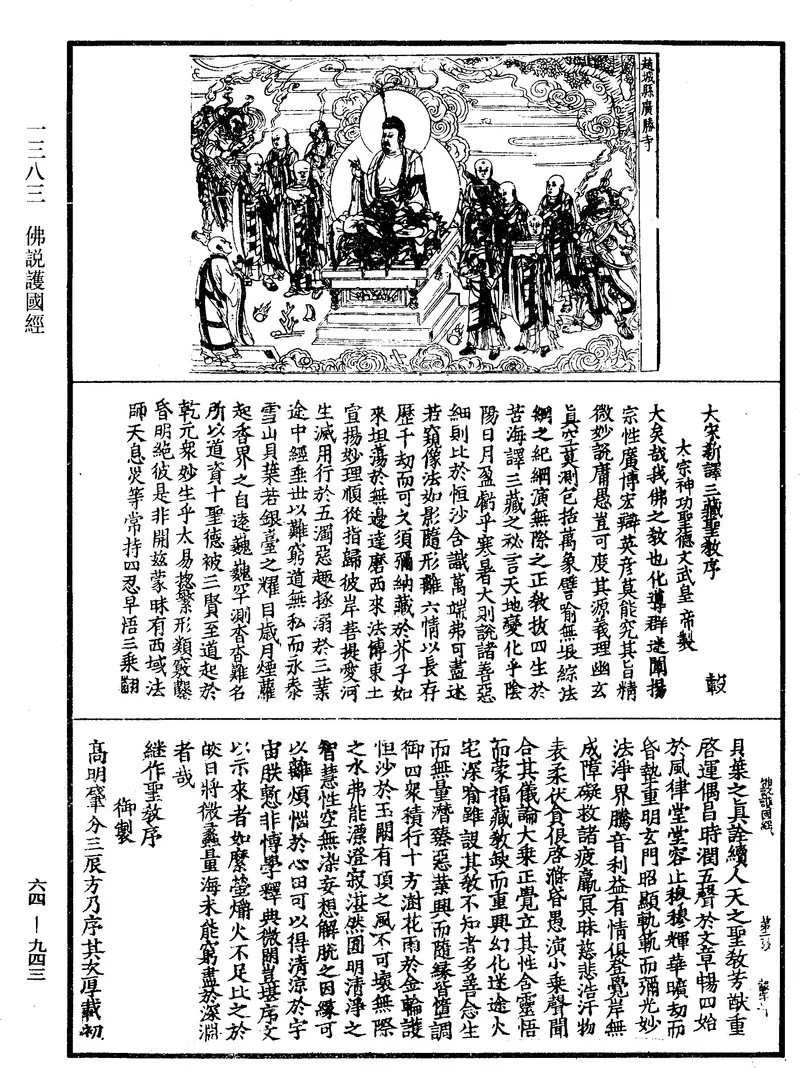 趙城縣廣勝寺
一三八三 佛説護國經
大宋新譯三藏聖教序 轂
太宗神功聖德文武皇帝製
大矣哉我佛之教也化導群迷闡揚
宗性廣博宏辯英彦莫能究其旨精
微妙說庸愚豈可度其源義理幽玄
真空莫測包括萬象譬喻無垠綜法
網之紀綱演無際之正教拔四生於
苦海譯三藏之祕言天地變化乎陰
陽日月盈虧乎寒暑大則說諸善惡
細則比於恒沙含識萬端弗可盡述
若窺像法如影隨形離六情以長存
歷千劫而可久須彌納藏於芥子如
來坦蕩於無邊達磨西來法傳東土
宣揚妙理順從指歸彼岸菩提愛河
生滅用行於五濁惡趣拯溺於三業
途中經垂世以難窮道無私而永泰
雪山貝葉若銀臺之耀目歲月煙蘿
起香界之自遠巍巍罕測杳杳難名
所以道資十聖德被三賢至道起於
乾元衆妙生乎太易揔繁形類竅鑿
昏明絶彼是非開兹蒙昧有西域法
師天息災等常持四忍早悟三乘翻
貝葉之真詮續人天之聖教芳猷重
啓運偶昌時潤五聲於文章暢四始
於風律堂堂容止穆穆輝華曠劫而
昏墊重明玄門昭顯軌範而彌光妙
法淨界騰音利益有情俱登覺岸無
成障礙救諸疲羸冥昧慈悲浩汗物
表柔伏貪佷啓滌昏愚演小乘聲聞
合其儀論大乘正覺立其性含靈悟
而蒙福藏教缺而重興幻化迷途火
宅深喻雖設其教不知者多善念生
而無量潛臻惡業興而隨緣皆墮調
御四衆積行十方澍花雨於金輪護
恒沙於玉闕有頂之風不可壞無際
之水弗能漂澄寂湛然圓明清淨之
智慧性空無染妄想解脱之因緣可
以離煩惱於心田可以得清涼於宇
宙朕慙非博學釋典微閑豈堪序文
以示來者如縻螢爝火不足比之於
皎日將微蠡量海未能窮盡於深淵
者哉
繼作聖教序
御製
髙明肇分三辰方乃序其次厚載初
佛説護國經 第二張 轂字号
六四—九四三